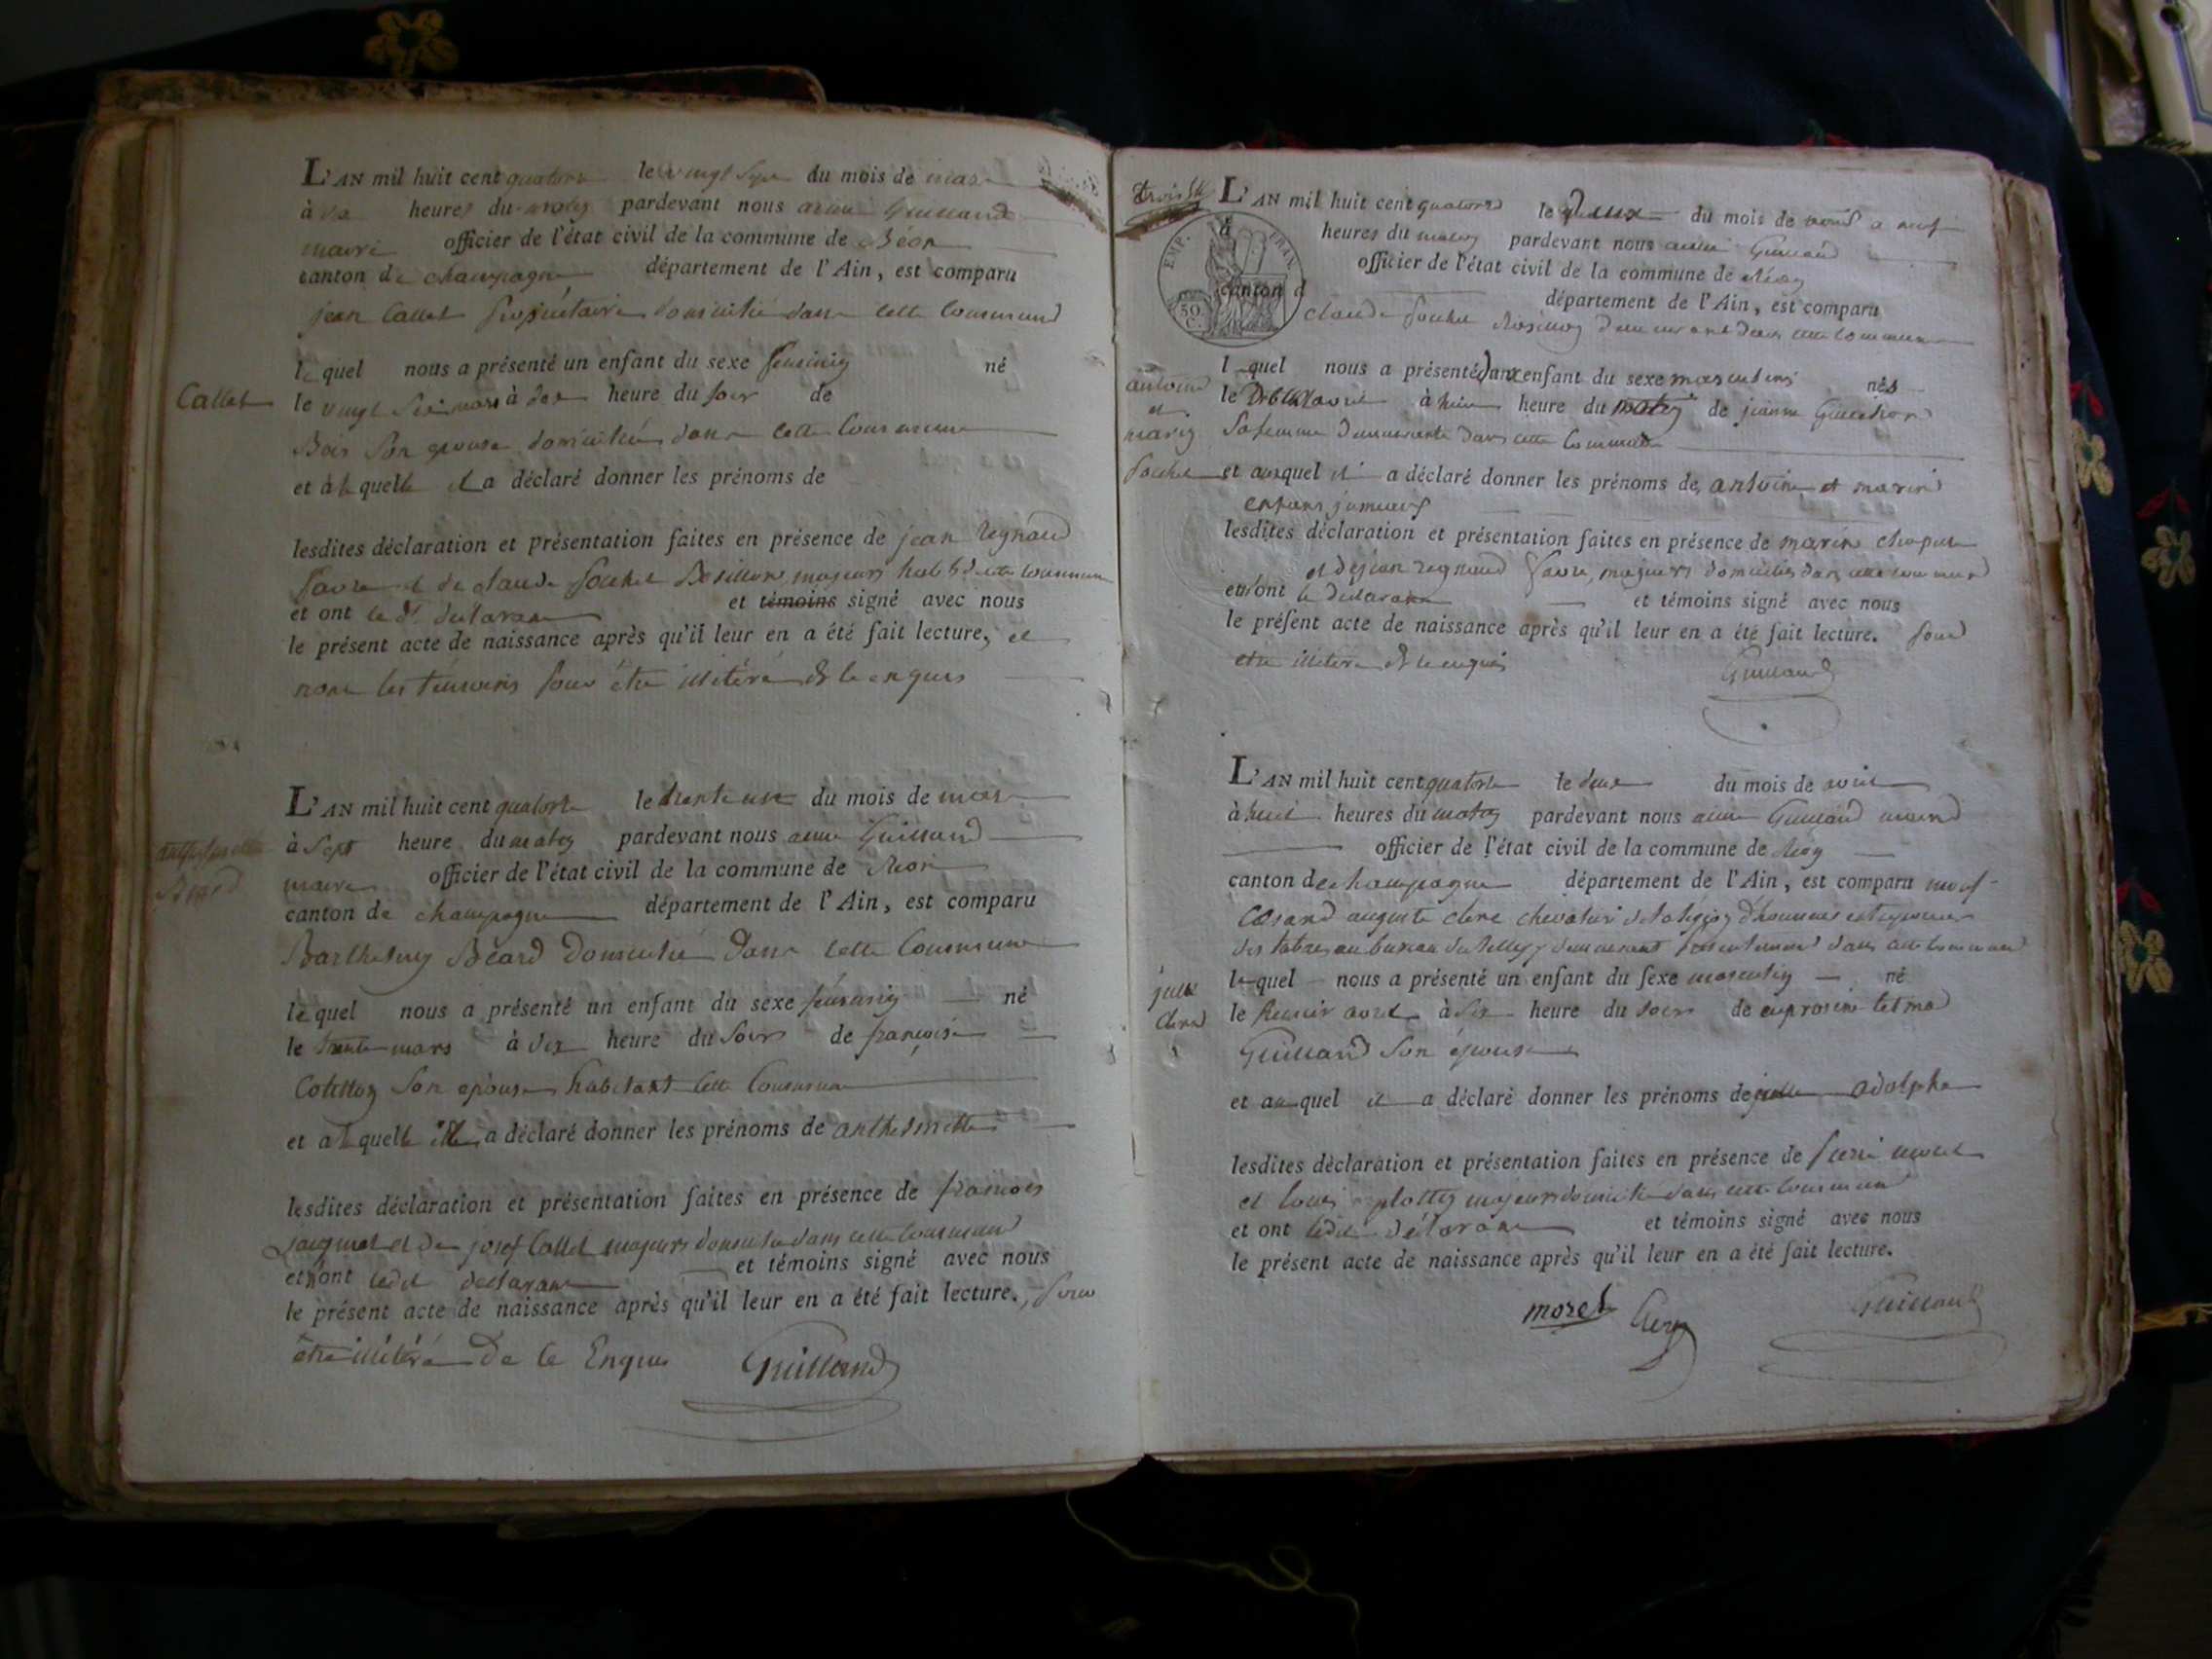 L'AN mil huit cent quatorze le vingt sept du mois de mars
à dix heures du matin pardevant nous aimé Guilland
maire officier de l'état civil de la commune de Béon
canton de champagne département de l'Ain, est comparu
jean Callet propriétaire domicilié dans cette Commune
lequel nous a présenté un enfant du sexe feminin né
Callet
le vingt six mars à dix heure du soir de
Bois Son epouse domiciliée dans cette Commune
et à la quelle il a déclaré donner les prénoms de
lesdites déclaration et présentation faites en présence de jean Regnaud
favre et de Claude majeurs commune
et ont le dt declarant et témoins signé avec nous
le présent acte de naissance après qu'il leur en a été fait lecture, et
non les témoins pour être illitéré de ce enquis
L'AN mil huit cent quatorze le trente un du mois de mars
à Sept heure du matin pardevant nous aimé Guilland
anthelmette
Béard
maire officier de l'état civil de la commune de Béon
canton de champagne département de l'Ain, est comparu
Barthelmy Béard Domicilié Dans cette Commune
lequel nous a présenté un enfant du sexe féminin né
le trente mars à dix heure du Soir de françoise
Cottetton Son epouse habitant cette Commune
et à la quelle il a déclaré donner les prénoms de anthelmette
lesdites déclaration et présentation faites en présence de francois
Jacquet et de josef Callet majeurs domicilié dans cette commune
et n'ont ledit declarant et témoins signé avec nous
le présent acte de naissance après qu'il leur en a été fait lecture, pour
être illitéré De Ce Enquis Guilland
trois
L'AN mil huit cent quatorze le Deux du mois de avril a neuf
EMP. FRAN.
50 C.
à heures du matin pardevant nous aimé Guilland
officier de l'état civil de la commune de Béon
canton d département de l'Ain, est comparu
claude demeurant dans cette commune
l quel nous a présenté deux enfant du sexe masculins nés
antoine
et
marin
le Deux avril à huit heure du matin de jeanne
Sa femme demeurante dans cette Commune
et auxquel il a déclaré donner les prénoms de antoine et marin
enfans jumeaux
lesdites déclaration et présentation faites en présence de marin
et de jean regnaud favre, majeurs domiciliés dans cette commune
et n'ont le declarant et témoins signé avec nous
le présent acte de naissance après qu'il leur en a été fait lecture. pour
etre illitéré de ce enquis Guilland
L'AN mil huit cent quatorze le deux du mois de avril
à huit heures du matin pardevant nous aimé Guilland maire
officier de l'état civil de la commune de Béon
canton de champagne département de l'Ain, est comparu
Cesard auguste clerc chevalier de la legion d'honneur
des tabacs au bureau de Belley demeurant presentement dans cette commune
lequel nous a présenté un enfant du sexe masculin né
jules
Clerc
le premier avril à six heure du soir de euprosine telma
Guilland Son épouse
et auquel il a déclaré donner les prénoms de jules adolphe
lesdites déclaration et présentation faites en présence de pierre morel
et louis majeurs domicilié dans cette commune
et ont ledit déclarant et témoins signé avec nous
le présent acte de naissance après qu'il leur en a été fait lecture.
morel Clerc Guilland